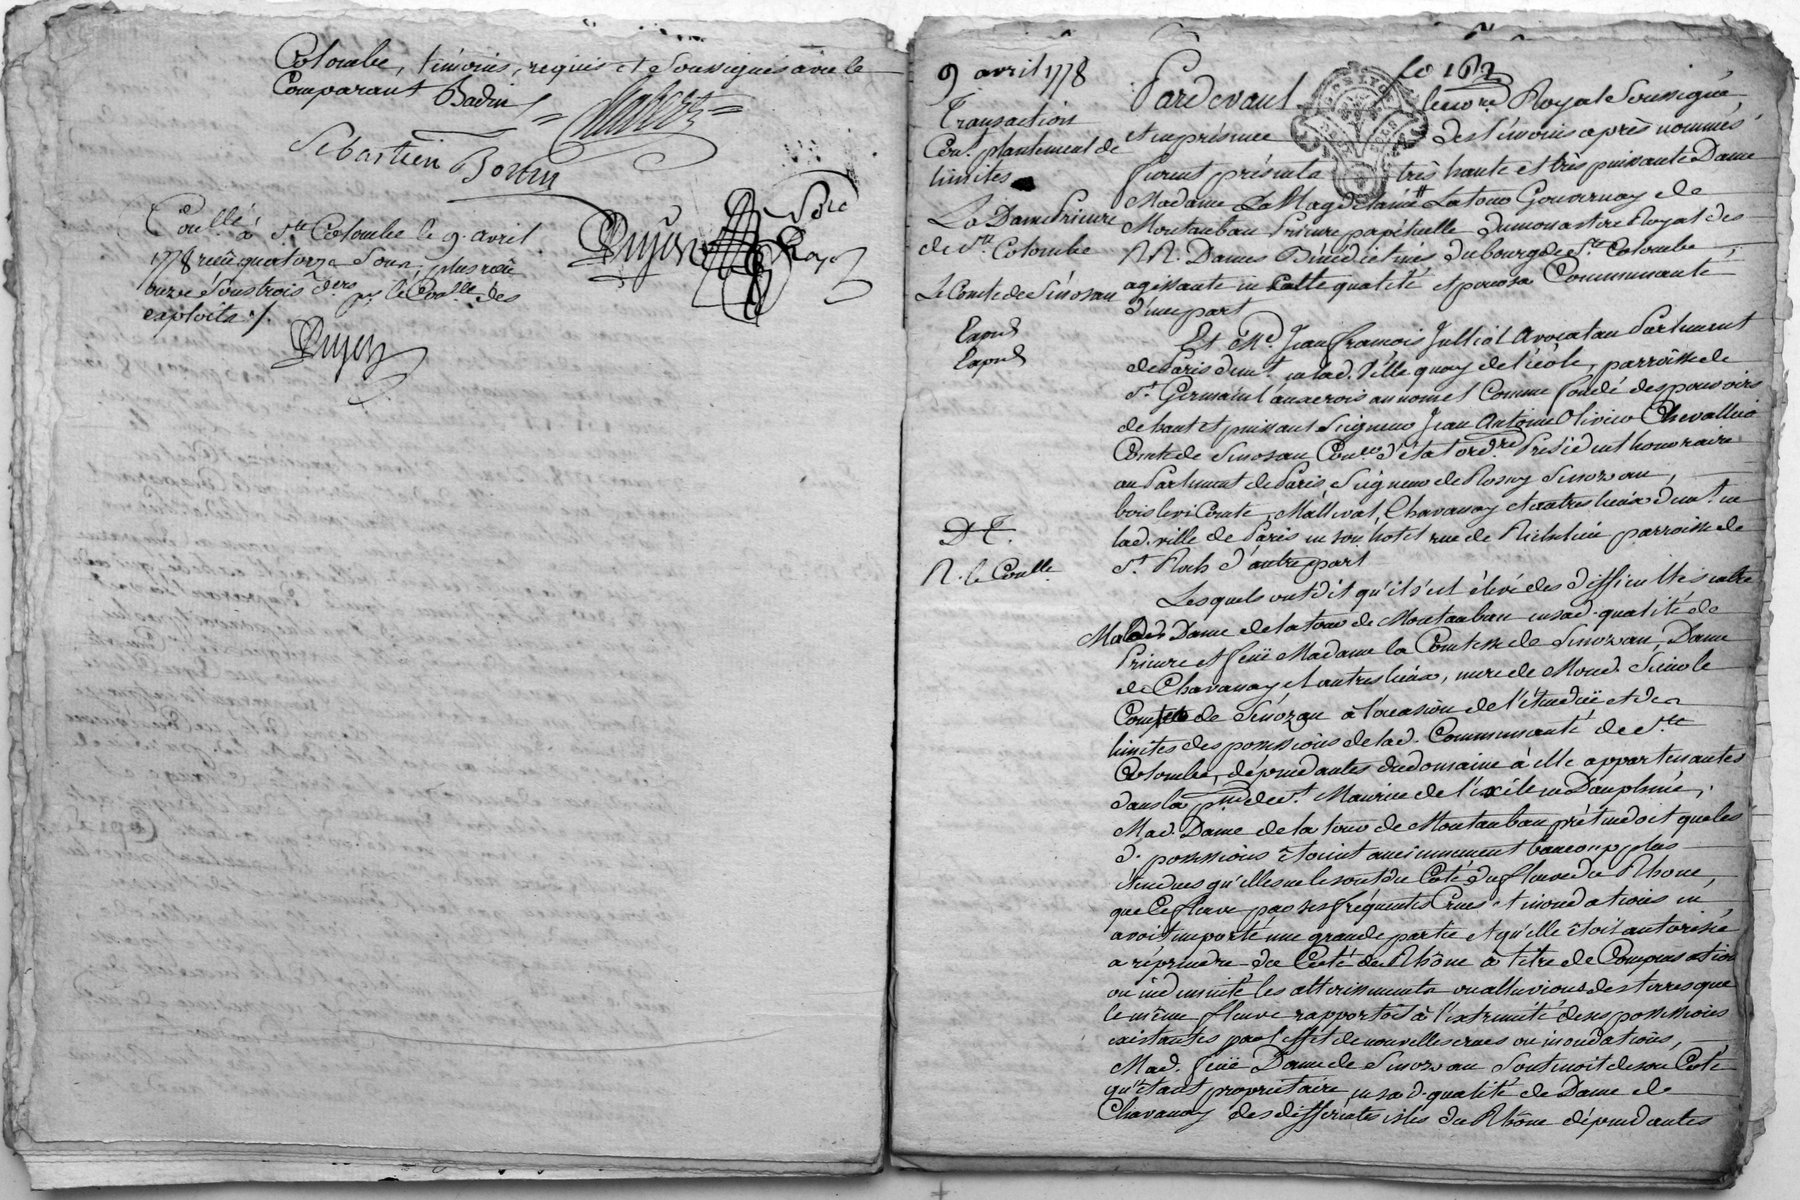 Colombe, témoins, requis et soussignés avec le
Comparant Badin
Sebastien Bottin
Dujon Nore Royal
Conllé à Ste Colombe le 9. avril
1778 reçu quatorze sous, plus reçu
onze sous trois ders pr le Conlle des
exploits ./.
Dujon
9 avril 1778
Transaction
Cont plantement de
limites
La Dame Prieure
de Ste Colombe
Le Comte de Sinosan
Expd
Expd
D T.
R. le Conlle
fo 162
Pardevant le no.re Royal Soussigné,
et en présence des témoins après nommés
furent présents très haute et très puissante Dame
Madame La Magdelaine Latour Gouvernay de
Montauban Prieure perpétuelle du monastere Royal des
RR. Dames Bénédictines du bourg de Ste Colombe,
agissante en cette qualité et pour sa Communauté
d'une part
Et Me. Jean francois Julliot Avocat au Parlement
de Paris demt. en lad. Ville quay de l'école, parroisse de
St Germain l'auxerois au nom et comme fondé des pouvoirs
de haut et puissant Seigneur Jean Antoine Olivier Chevallier
Comte de Sinosan Coner d'état ordre Président honoraire
au Parlement de Paris Seigneur de Rosny Sinozan,
bois le vi Comte, Malleval, Chavanay et autres lieux demt. en
lad. ville de Paris en son hotel rue de Richelieu parroisse de
St. Roch d'autre part
Lesquels ont dit qu'il s'est élevé des difficultés entre
Mad. Dame de la tour de Montauban en sad. qualité de
Prieure et feüe Madame la Comtesse de Sinozan, Dame
de Chavanay et autres lieux, mere de Mond. Sieur le
Comte de Sinozan à l'occasion de l'étendüe et des
limites des possessions de lad. Communauté de Ste
Colombe, dépendantes du domaine à elle appartenantes
dans la psse de St. Maurice de l'exile en Dauphiné,
Mad. Dame de la tour de Montauban prétendoit que les
d. possessions étoient anciennement beaucoup plus
étendues qu'elles ne le sont du Coté du fleuve du Rhone,
que ce fleuve par ses fréquentes Crues et inondations en
avoit emporté une grande partie et qu'elle étoit autorisée
a réprendre du Coté du Rhône à titre de Compensation
ou indemnité les atterissements ou alluvions des terres que
le même fleuve rapportoit à l'extremité de ses possessions
existantes par l'effet de nouvelles crues ou inondations,
Mad. feüe Dame de Sinozan Soutenoit de son Coté
qu'étant propriétaire en sad. qualité de Dame de
Chavanay des différentes isles du Rhône dépendantes